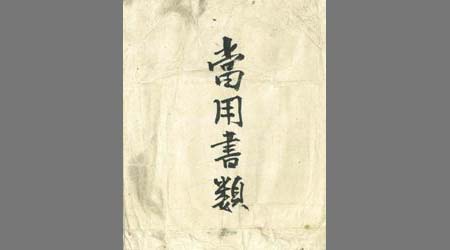 當用書類